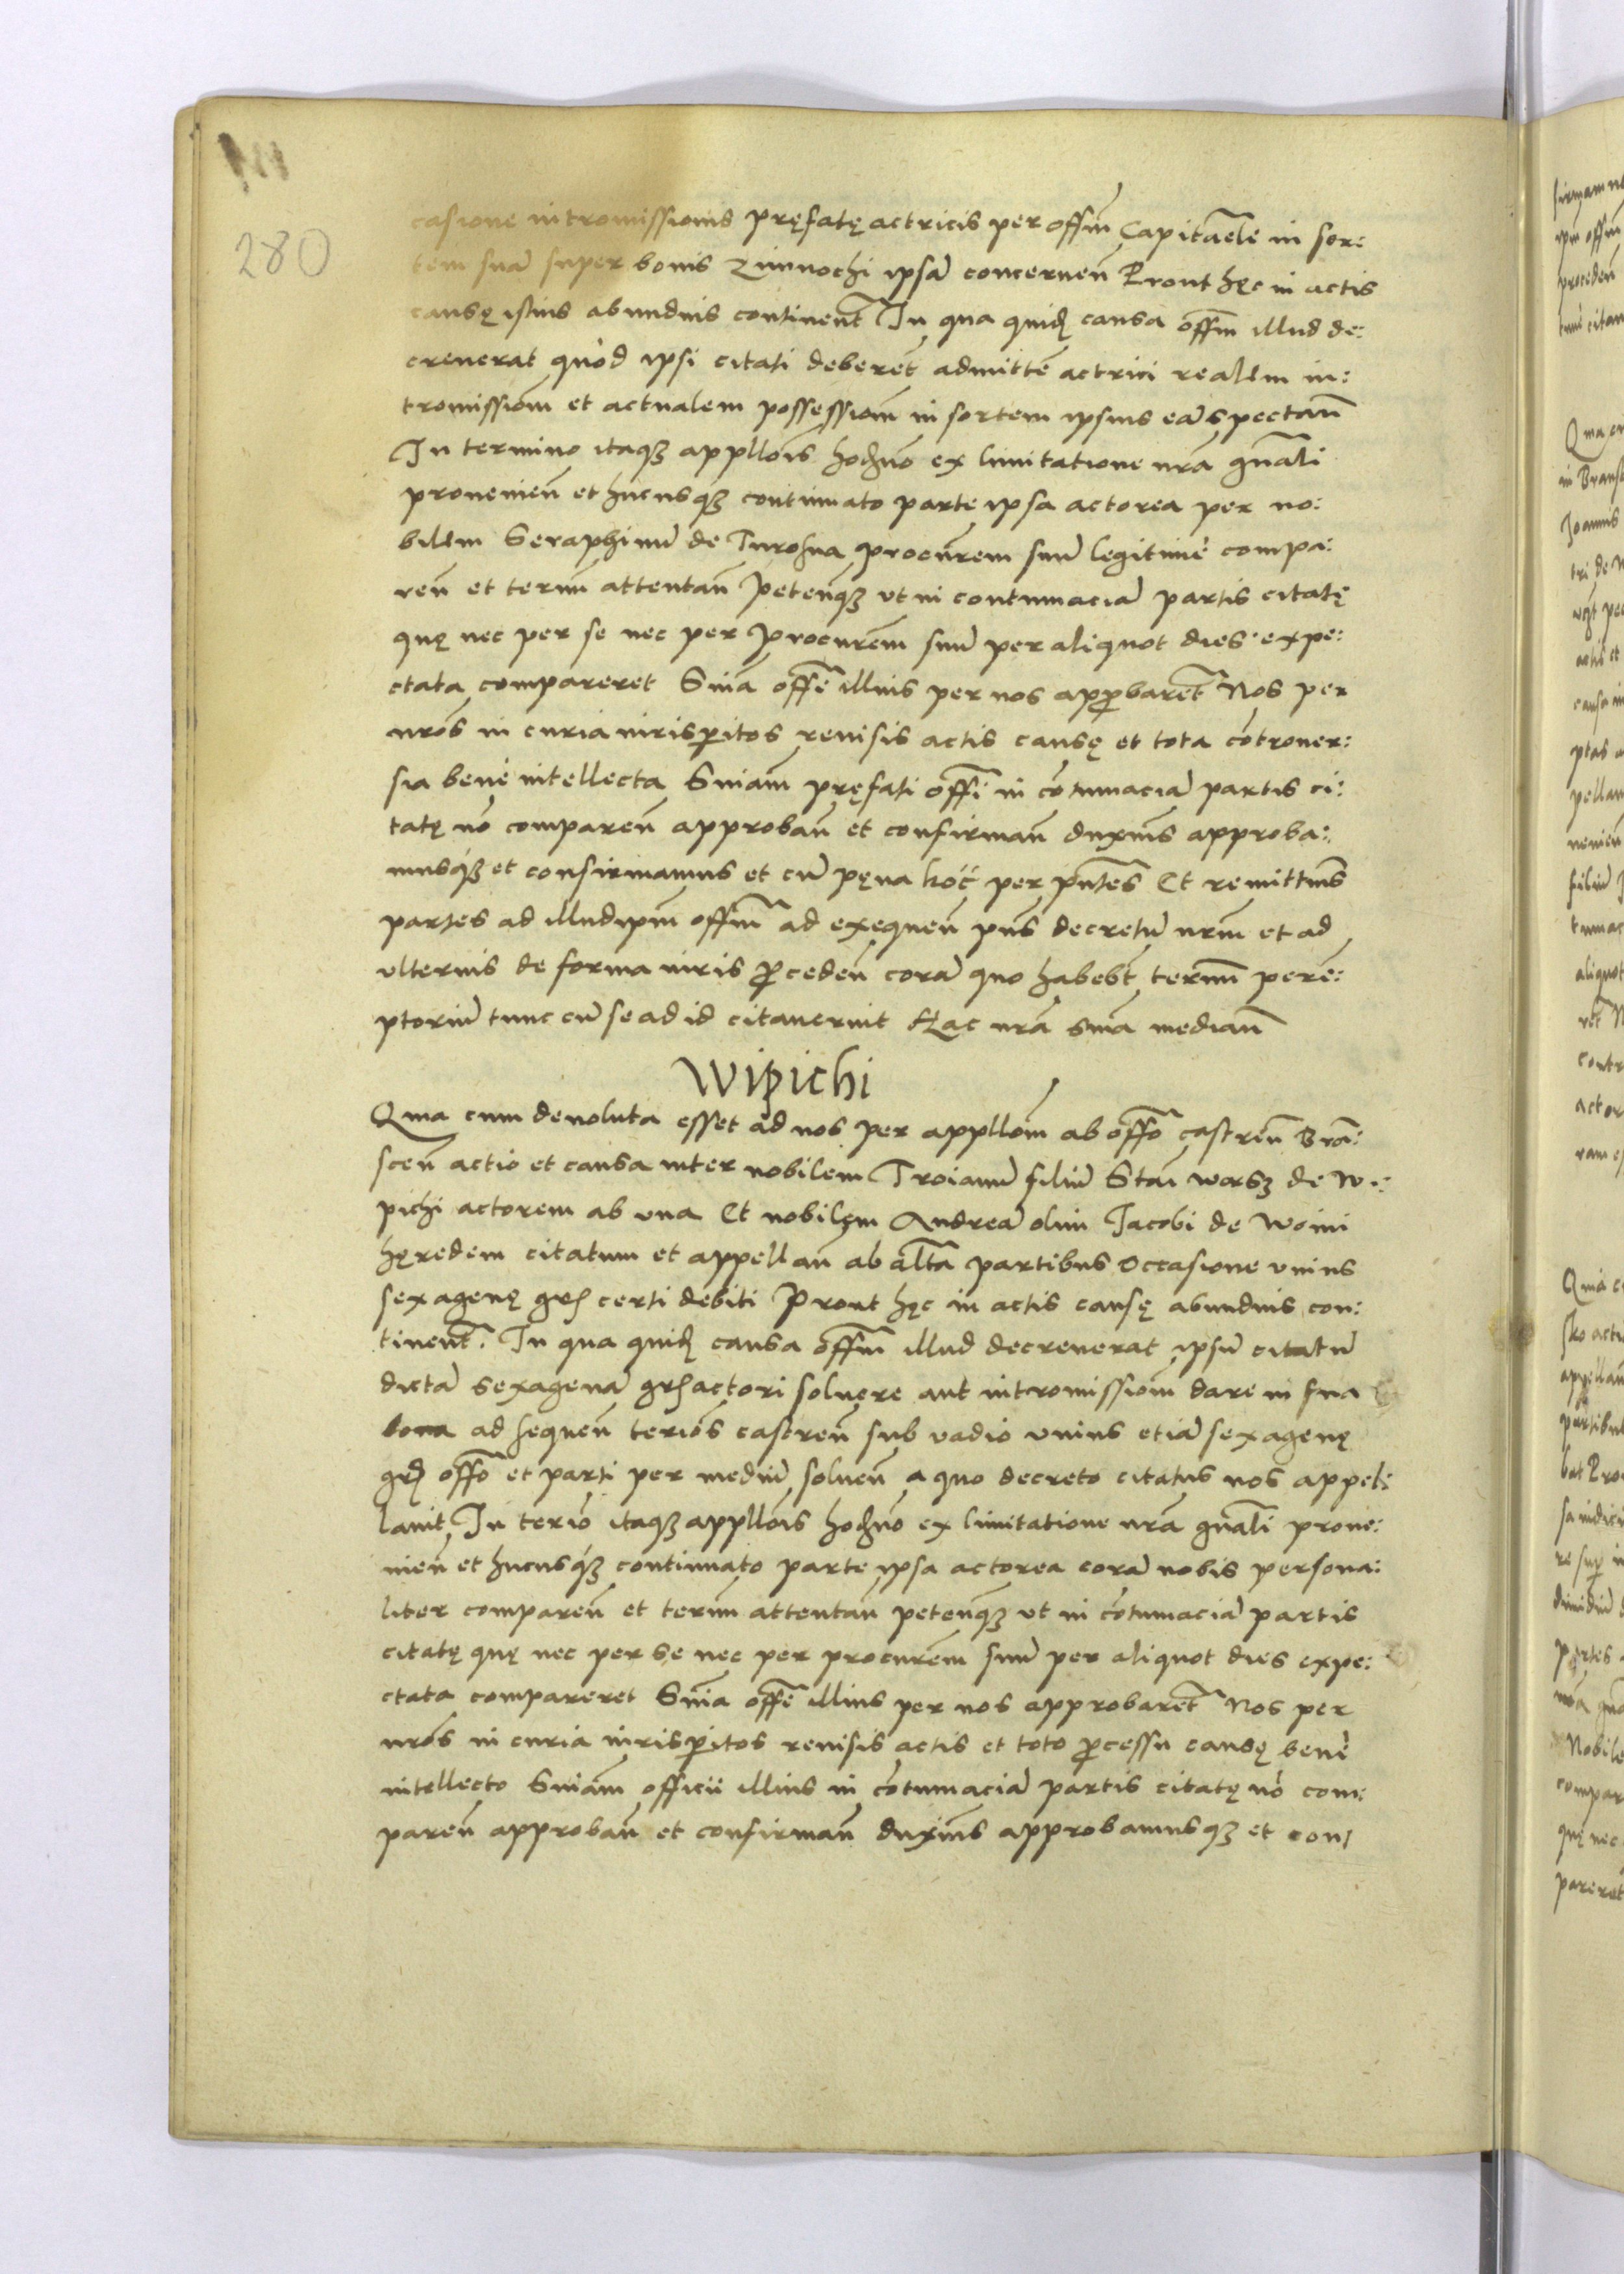 280
casione intromissionis pręfatę actricis per offm̃ Capitãele in sor:
tem suã super bonis Zimnochi ipsã concerneñ Prout hęc in actis
causę istius abundius continent̃ In qua quid̃ causa offm̃ illud de:
creuerat quòd ipsi citati deberet̃ admittẽ actrici realem in:
tromissiom̃ et actualem possessiom̃ in sortem ipsius eã spectañ
In termino itaqꝫ appllõis hodiernõ ex limitatione nrã gnãli
prouenieñ et hucusqꝫ continuato parte ipsa actorea per no:
bilem Seraphinũ de Turosna procurem̃ suũ legitimè compa:
reñ et termĩ attentañ Petenqꝫ̃ vt in contumaciã partis citatę
quę nec per se nec per Procurem̃ suũ per aliquot dies expe:
ctata compareret Sniã offĩ illius per nos approbaret̃ Nos per
nros̃ in curia iurisp̃itos reuisis actis causę et tota cõtrouer:
sia benè intellecta Sniam̃ pręfati offĩ in cõtumaciã partis ci:
tatę nõ compareñ approbañ et confirmañ duxims̃ approba:
musqꝫ et confirmamus et cũ pęna hoc̃ per pñtes Et remittims̃
partes ad illud ipm̃ offm̃ ad exequeñ pñs decretũ nrm̃ et ad
vlterius de forma iuris p̃cedeñ corã quo habebt̃ termĩ perẽ:
ptoriũ tunc cũ se ad id citauerint Hac nrã sniã mediañ
Wipichi
Quia cum deuoluta esset ad nos per appllom̃ ab offõ castreñ Brã:
sceñ actio et causa inter nobilem Troianũ filiũ Stañ worsz de Wi:
pichi actorem ab vna Et nobilem Andreã olim Jacobi de Woini
hęredem citatum et appellañ ab altã partibus Occasione vnius
sexagenę grs̃ certi debiti Prout hęc in actis causę abundius con:
tinent̃. In qua quid̃ causa offm̃ illud decreuerat ipsũ citatũ
dictã sexagenã grs̃ actori soluere aut intromissiom̃ dare in sua
bona ad sequeñ teriõs castreñ sub vadio vnius etiã sexagenę
grs̃ offõ et parti per mediũ solueñ a quo decreto citatus nos appel:
lauit In teriõ itaqꝫ appllõis hodiernõ ex limitatione nrã gnãli proue:
nieñ et hucusqꝫ continuato parte ipsa actorea corã nobis persona:
liter compareñ et termĩ attentañ petenqꝫ̃ vt in cõtumaciã partis
citatę quę nec per se nec per procurem̃ suũ per aliquot dies expe:
ctata compareret Sniã offĩ illius per nos approbaret̃ Nos per
nros̃ in curia iurisp̃itos reuisis actis et toto p̃cessu causę benè
intellecto Sniam̃ officii illius in cõtumaciã partis citatę nõ com:
pareñ approbañ et confirmañ duxims̃ approbamusqꝫ et con